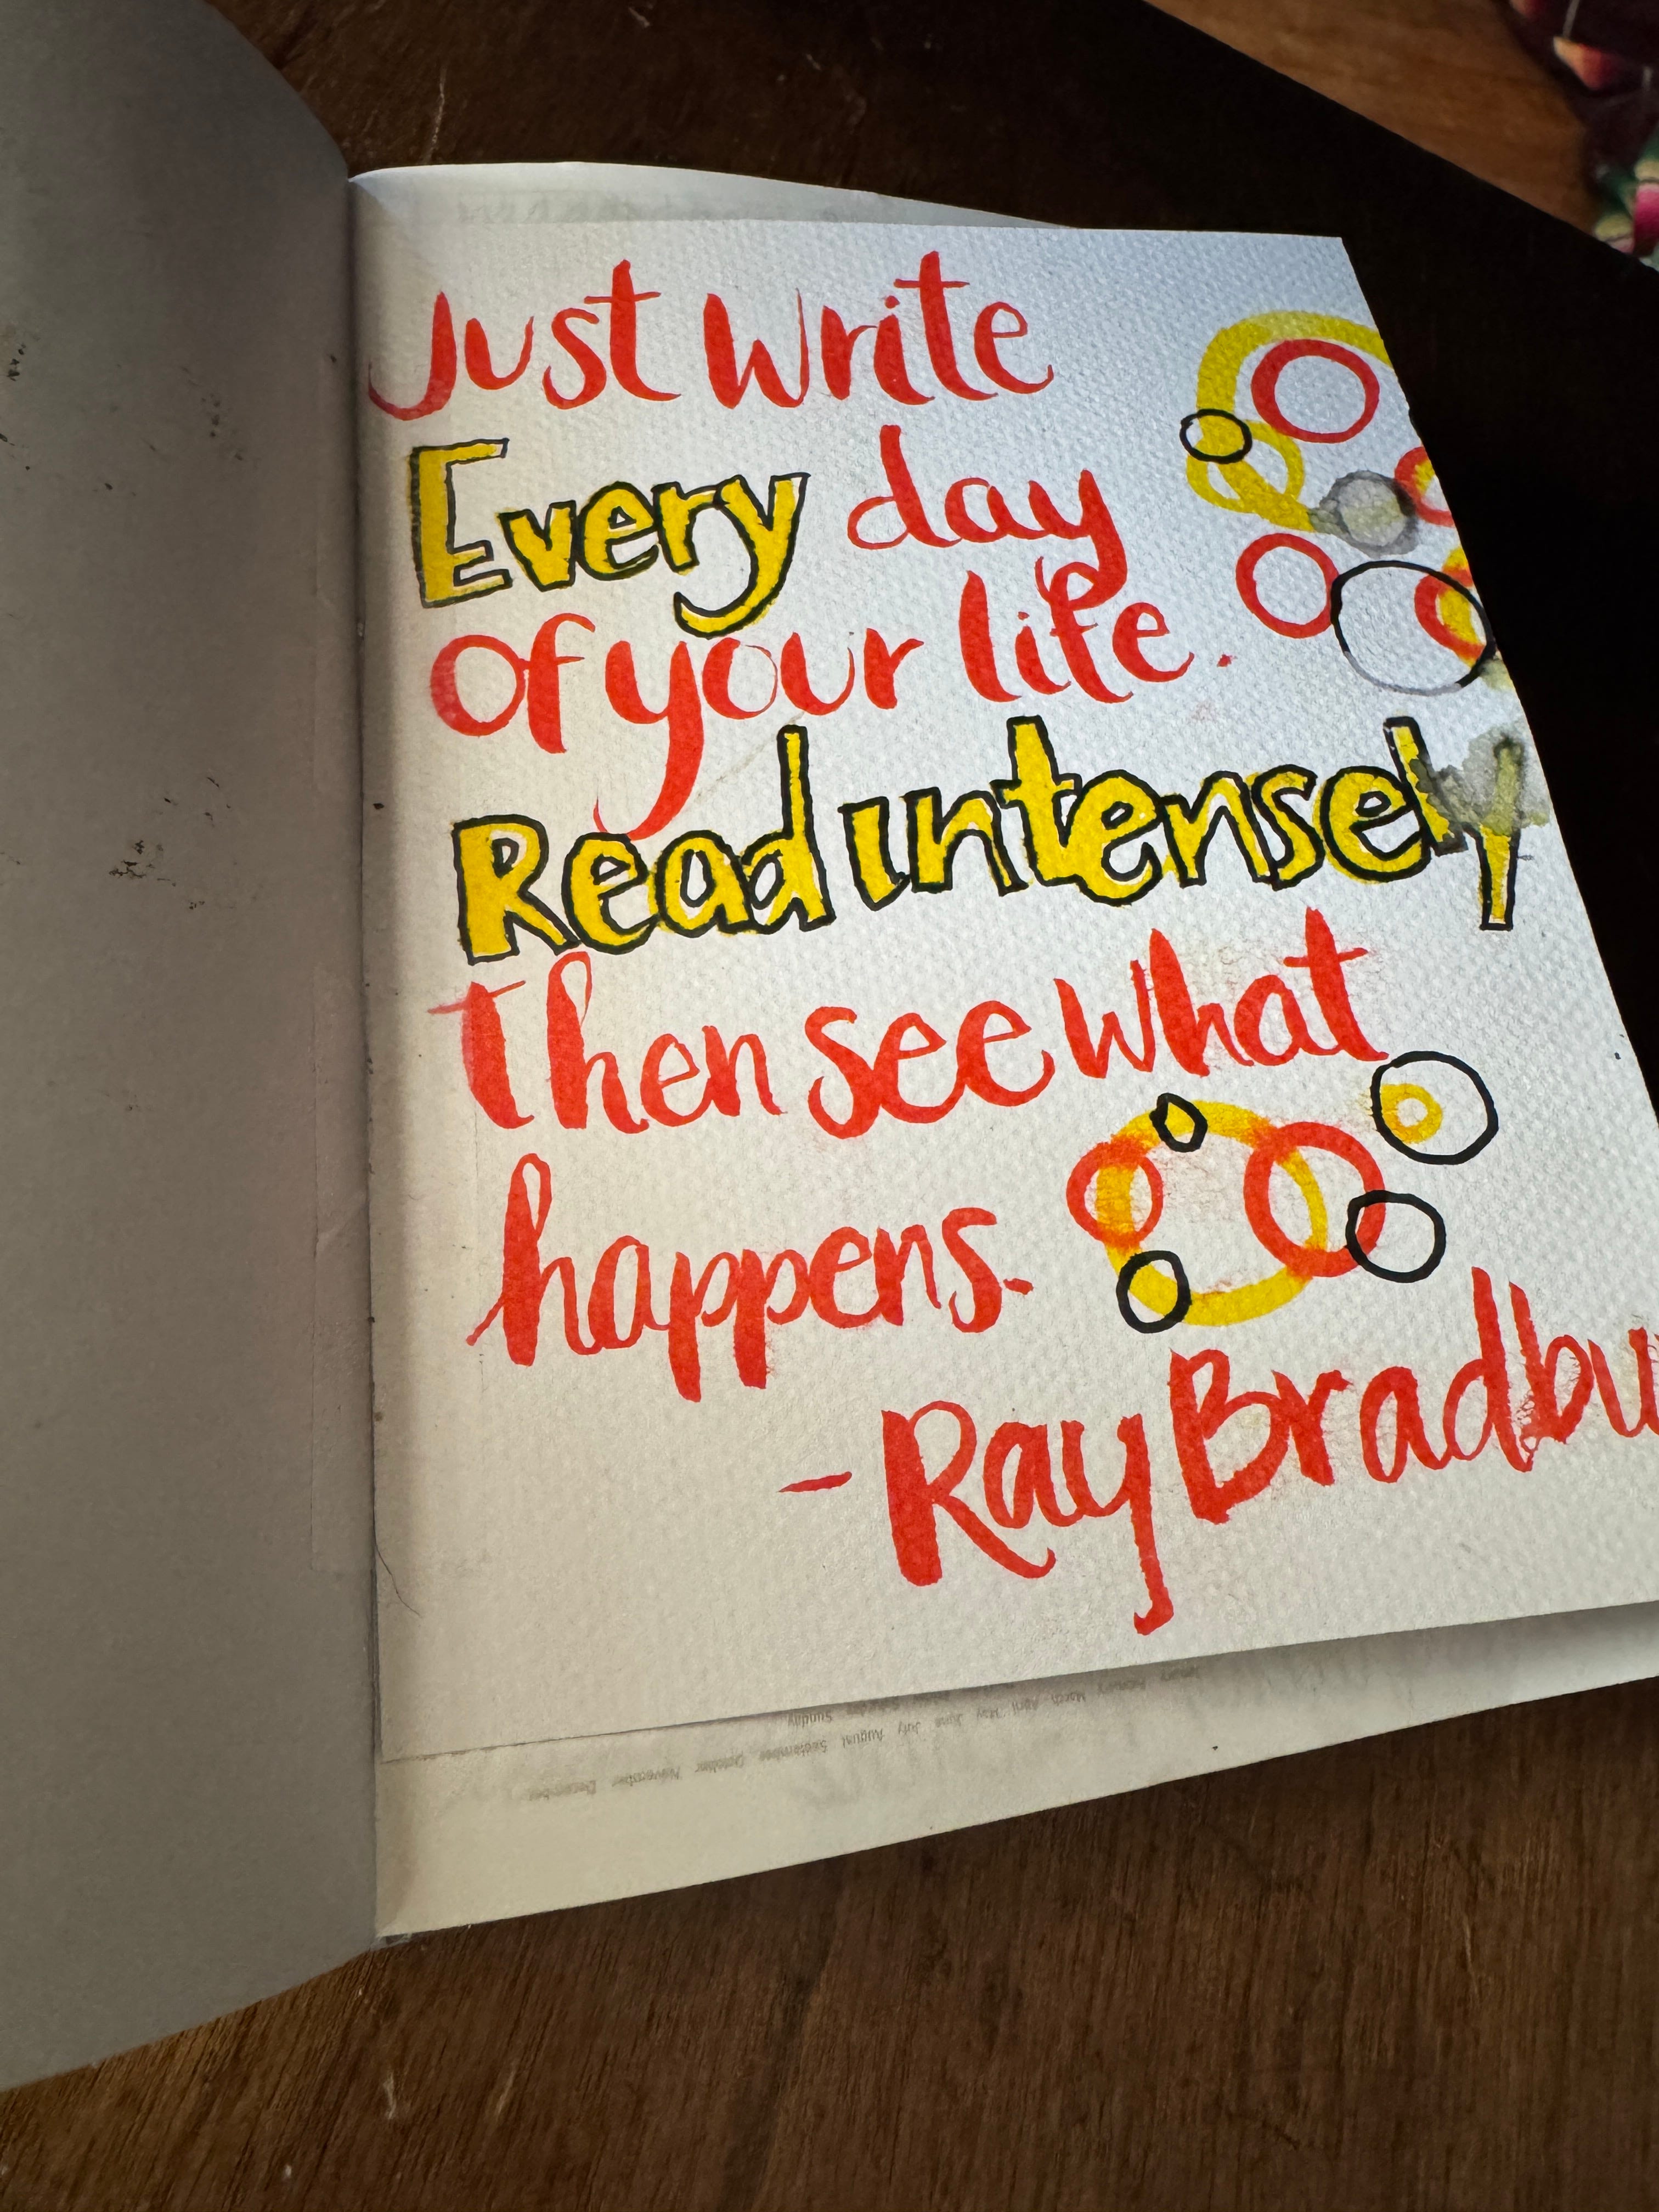 Just Write
Every day
of your life.
Read intensely
Then see what
happens.
- Ray Bradbu
Sunday
January February March April May June July August September October November December